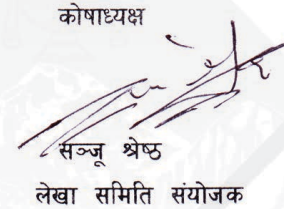 कोषाध्यक्ष
सञ्जू श्रेष्ठ
लेखा समिति संयोजक